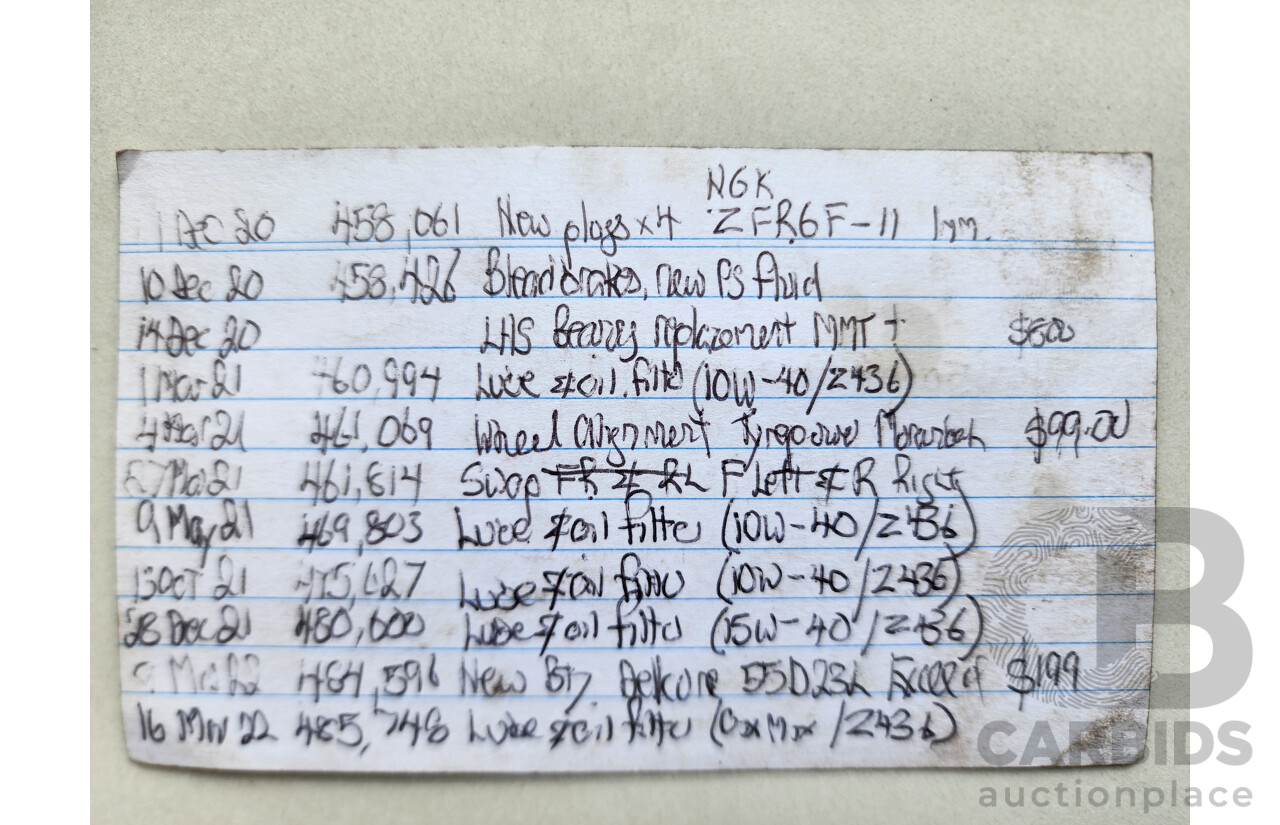 NGK
1 Dec 20 458,061 New plugs x 4 ZFR6F-11 1mm.
10 Dec 20 458,426 Bleed brakes, new PS fluid
14 Dec 20 LHS Bearing replacement MMT + $500
1 Mar 21 460,994 Lube & oil. filter (10W-40/Z436)
4 Mar 21 461,069 Wheel Alignment Tyrepower $99.00
Mar 21 461,814 Swap FR & RL F Left & R Right
9 May 21 469,803 Lube & oil filter (10W-40/Z436)
13 Oct 21 475,627 Lube & oil filter (10W-40/Z436)
28 Dec 21 480,600 Lube & oil filter (15W-40/Z436)
Mar 22 484,596 New Bty. Delkore 55D23L $199
16 Mar 22 485,748 Lube & oil filter (/Z436)
B
CARBIDS
auctionplace